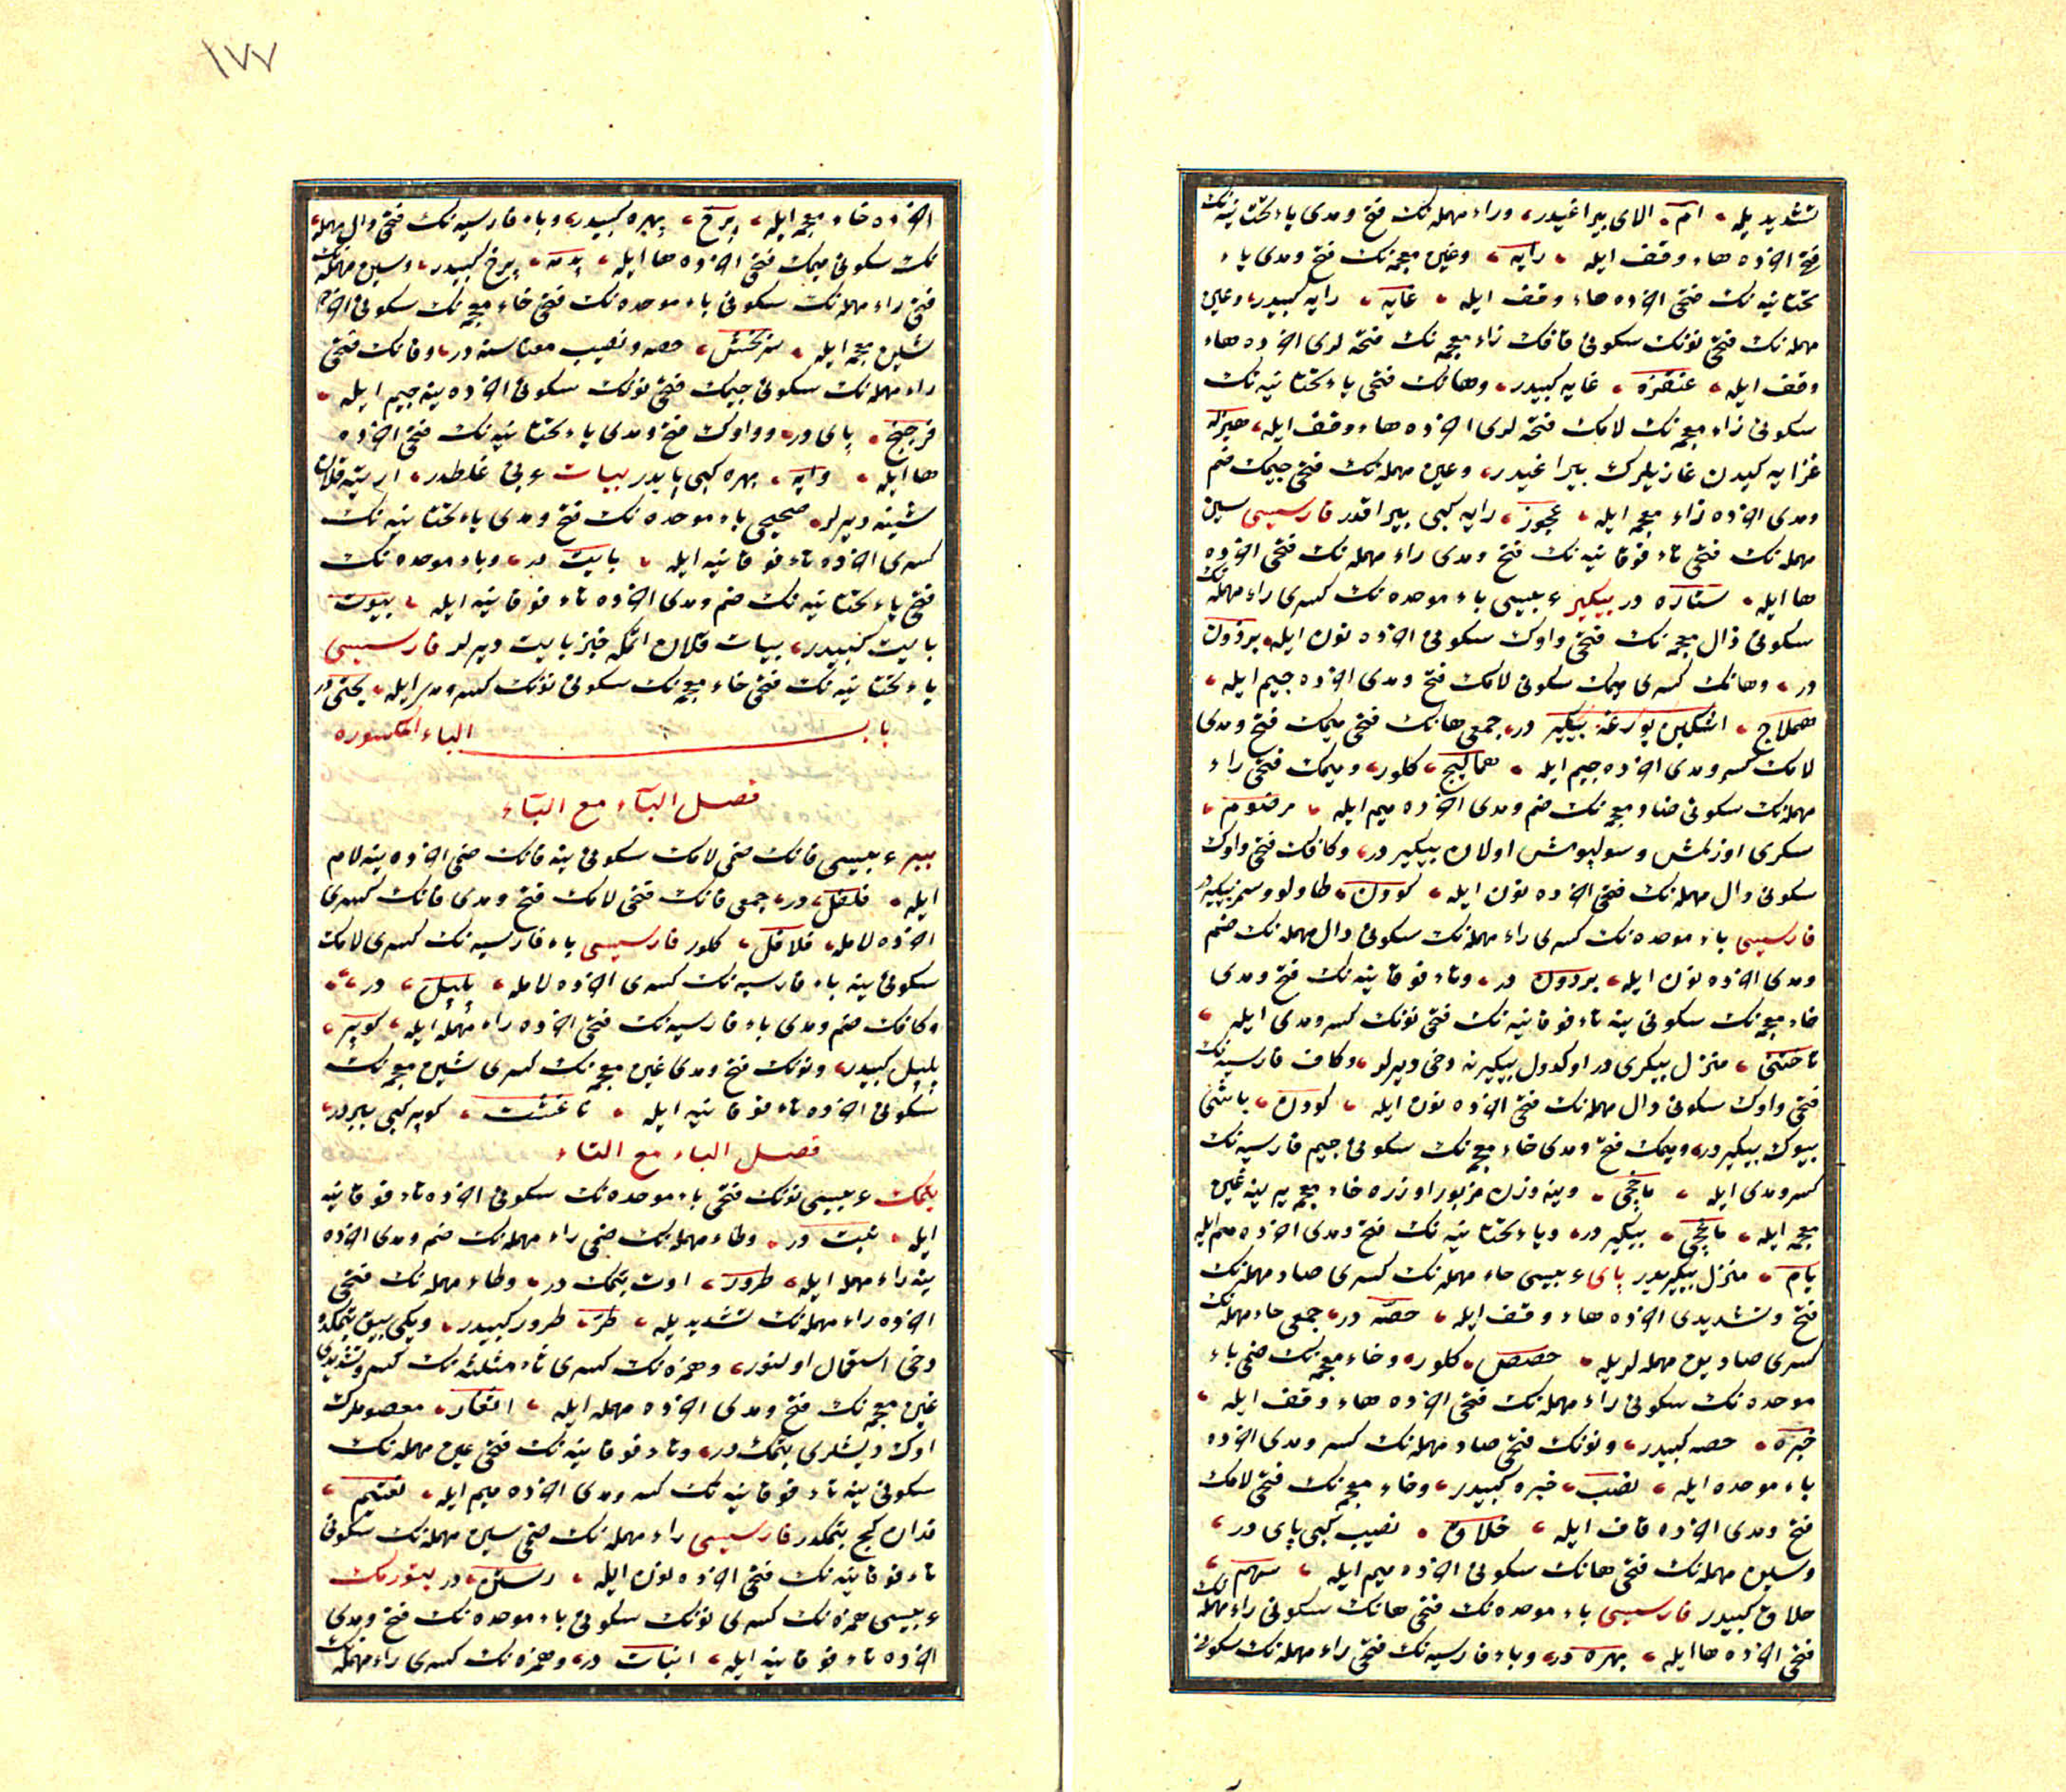 تشدیدیله ام الای بیراغیدر وراء مهمله‌نک فتح ومدی یاء تحتانیه‌نک
فتحی اخرده هاء وقف ایله رایه وغین معجه‌نک فتح ومدی یاء
تحتانیه‌نک فتحی اخرده هاء وقف ایله غایه رایه کبیدر وعین
مهمله‌نک فتحی نونک سکونی قافک زاء معجه‌نک فتحه لری اخرده هاء
وقف ایله عنقزه غایه کبیدر وهانک فتحی یاء تحتانیه‌نک
سکونی زاء معجه‌نک لامک فتحه لری اخرده هاء وقف ایله هیزله
غزایه کیدن غازیلرک بیراغیدر وعین مهمله‌نک فتحی جیمک ضم
ومدی اخرده زاء معجه ایله عجوز رایه کبی بیراقدر فارسیسی سین
مهمله‌نک فتحی تاء فوقانیه‌نک فتح ومدی راء مهمله‌نک فتحی اخرده
ها ایله ستاره در بیکیر عربیسی باء موحده‌نک کسری راء مهمله‌نک
سکونی ذال معجه‌نک فتحی واوک سکونی اخرده نون ایله برذون
در وهانک کسری میمک سکونی لامک فتح ومدی اخرده جیم ایله
هملاج اشکین یورغه بیکیر در جمعی هانک فتحی میمک فتح ومدی
لامک کسر ومدی اخرده جیم ایله همالیج کلور ومیمک فتحی راء
مهمله‌نک سکونی ضاد معجه‌نک ضم ومدی اخرده میم ایله مرضوم
سکری اوزلمش وسولپومش اولان بیکیر در وکافک فتحی واوک
سکونی دال مهمله‌نک فتحی اخرده نون ایله کودن طاولو وسمز بیکیر در
فارسیسی باء موحده‌نک کسری راء مهمله‌نک سکونی دال مهمله‌نک ضم
ومدی اخرده نون ایله بردون در وتاء فوقانیه‌نک فتح ومدی
خاء معجه‌نک سکونی ینه تاء فوقانیه‌نک فتحی نونک کسر ومدی ایله
تاختنی منزل بیکری در اوکدول بیکیرنه دخی دیرلر وکاف فارسیه‌نک
فتحی واوک سکونی دال مهمله‌نک فتحی اخرده نون ایله کودن باشی
بیوک بیکیر در ومیمک فتح ومدی خاء معجه‌نک سکونی جیم فارسیه‌نک
کسر ومدی ایله ماخچی وینه وزن مزبور اوزره خاء معجه یه ینه غین
معجه ایله ماغچی بیکیر در ویاء تحتانیه‌نک فتح ومدی اخرده میم ایله
یام منزل بیکیریدر پای عربیسی حاء مهمله‌نک کسری صاد مهمله‌نک
فتح وتشدیدی اخرده هاء وقف ایله حصه در جمعی حاء مهمله‌نک
کسری صادین مهمله لریله حصص کلور وخاء معجه‌نک ضمی باء
موحده‌نک سکونی راء مهمله‌نک فتحی اخرده هاء وقف ایله
خبره حصه کبیدر ونونک فتحی صاد مهمله‌نک کسر ومدی اخرده
باء موحده ایله نصیب خبره کبیدر وخاء معجه‌نک فتحی لامک
فتح ومدی اخرده قاف ایله خلاق نصیب کبی پای در
وسین مهمله‌نک فتحی هانک سکونی اخرده میم ایله سهم
خلاق کبیدر فارسیسی باء موحده‌نک فتحی هانک سکونی راء مهمله‌نک
فتحی اخرده ها ایله بهره در وباء فارسیه‌نک فتحی راء مهمله‌نک سکونی
١٧٧
اخرده خاء معجه ایله پرخ بهره کبیدر وباء فارسیه‌نک فتحی دال مهمله
نک سکونی میمک فتحی اخرده ها ایله پدمه پرخ کبیدر وسین مهمله‌نک
فتحی راء مهمله‌نک سکونی باء موحده‌نک فتحی خاء معجه‌نک سکونی اخرده
شین معجه ایله سربخش حصه ونصیب معناسنه در وفانک فتحی
راء مهمله‌نک سکونی جیمک فتحی نونک سکونی اخرده ینه جیم ایله
فرجنج پای در وواوک فتح ومدی یاء تحتانیه‌نک فتحی اخرده
ها ایله وایه بهره کبی پایدر بیات عربی غلطدر ارته قلان
شینه دیرلر صحیحی باء موحده‌نک فتح ومدی یاء تحتانیه‌نک
کسری اخرده تاء فوقانیه ایله بایت در وباء موحده‌نک
فتحی یاء تحتانیه‌نک ضم ومدی اخرده تاء فوقانیه ایله بیوت
بایت کبیدر بیات قلان اتمکه خبز بایت دیرلر فارسیسی
یاء تحتانیه‌نک فتحی خاء معجه‌نک سکونی نونک کسر ومدی ایله یخنی در
باب الباء المکسوره
فصل الباء مع الباء
ببر عربیسی فانک ضمی لامک سکونی ینه فانک ضمی اخرده ینه لام
ایله فلفل در جمعی فانک فتحی لامک فتح ومدی فانک کسری
اخرده لامله فلافل کلور فارسیسی باء فارسیه‌نک کسری لامک
سکونی ینه باء فارسیه‌نک کسری اخرده لامله پلپل در
وکافک ضم ومدی باء فارسیه‌نک فتحی اخرده راء مهمله ایله کوپر
پلپل کبیدر ونونک فتح ومدی غین معجه‌نک کسری شین معجه‌نک
سکونی اخرده تاء فوقانیه ایله ناغشت کوپر کبی ببردر
فصل الباء مع التاء
بتمک عربیسی نونک فتحی باء موحده‌نک سکونی اخرده تاء فوقانیه
ایله نبت در وطاء مهمله‌نک ضمی راء مهمله‌نک ضم ومدی اخرده
ینه راء مهمله ایله طرور اوت بتمک در وطاء مهمله‌نک فتحی
اخرده راء مهمله‌نک تشدیدیله طر طرور کبیدر ویکی بیق بتمکده
دخی استعمال اولنور وهمزه‌نک کسری ثاء مثلثه‌نک کسر وتشدیدی
غین معجه‌نک فتح ومدی اخرده مهمله ایله اثغار معصوملرک
اوک دیشلری بتمک در وتاء فوقانیه‌نک فتحی عین مهمله‌نک
سکونی ینه تاء فوقانیه‌نک کسر ومدی اخرده میم ایله تعتیم
فدان کج بتمکدر فارسیسی راء مهمله‌نک ضمی سین مهمله‌نک سکونی
تاء فوقانیه‌نک فتحی اخرده نون ایله رستن در بتورمک
عربیسی همزه‌نک کسری نونک سکونی باء موحده‌نک فتح ومدی
اخرده تاء فوقانیه ایله انبات در وهمزه‌نک کسری راء مهمله‌نک